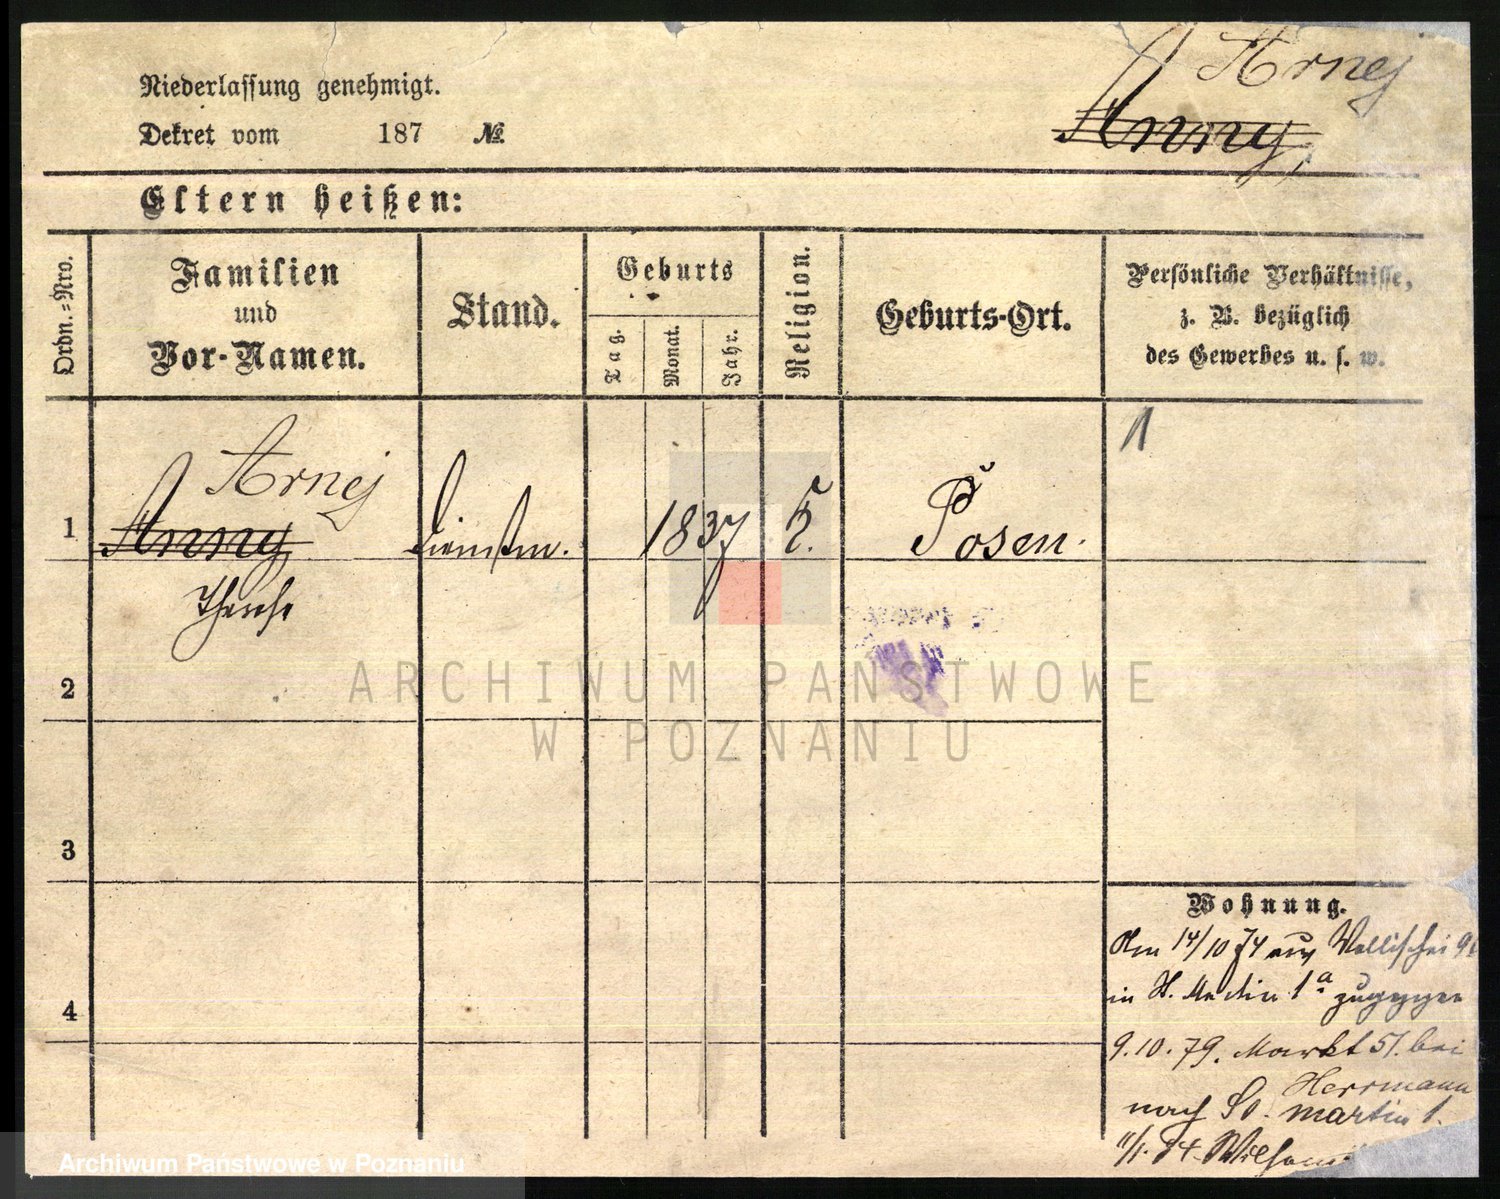 Niederlassung genehmigt.
Dekret vom 187 №
Arnej
Anny,
Eltern heißen:
Ordn.-Nro.
Familien
und
Vor-Namen.
Stand.
Geburts
Tag.
Monat.
Jahr.
Religion.
Geburts-Ort.
Persönliche Verhältnisse,
z. B. bezüglich
des Gewerbes u. s. w.
1
Arnej
1 Anny 1837 Posen.
Therese
2
ARCHIWUM PAŃSTWOWE
W POZNANIU
3
Wohnung.
14/10 74 aus Wallischei
in St. Martin 1a zugezogen
4
9.10.79. Markt 51. bei
Herrmann
nach St. Martin 1.
Archiwum Państwowe w Poznaniu